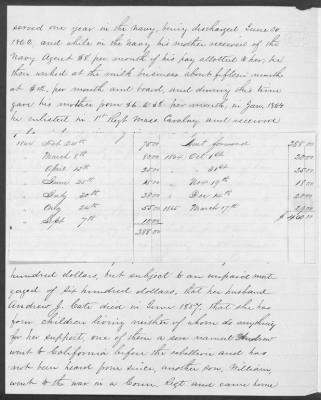 served one year in the Navy, being discharged June 30
1862, and while in the navy his mother received of the
Navy Agent $8 per month of his pay allotted to her; he
then worked at the milk business about fifteen months
at $ per month and board, and during this time
gave his mother from $6 to $8 per month, in Jan. 1864
he enlisted in 1st Regt Mass Cavalry and received
1864 Feb 24th 75.00 Amt forward 288.00
" March 9th 50.00 1864 Oct 1st 20.00
" April 15th 25.00 " " 31st 35.00
" June 25th 15.00 " Nov 19th 18.00
" July 20th 28.00 " Dec 14th 20.00
" Aug 26th 55.00 1865 March 17th
" Sept 7th
288.00
hundred dollars, but subject to an unpaid mort
gage of six hundred dollars, that her husband
Andrew J. Cate died in June 1887, that she has
four children living neither of whom do anything
for her support, one of them a son named Andrew
went to California before the rebellion and has
not been heard from since, another son, William,
went to the war in a Conn Regt and came home